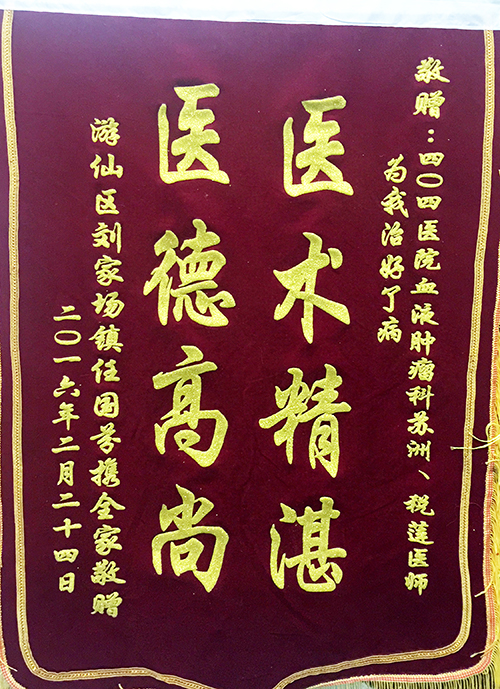 敬赠：四〇四医院血液肿瘤科苏洲、税莲医师
为我治好了病
医术精湛
医德高尚
游仙区刘家场镇任国芬携全家敬赠
二〇一六年二月二十四日